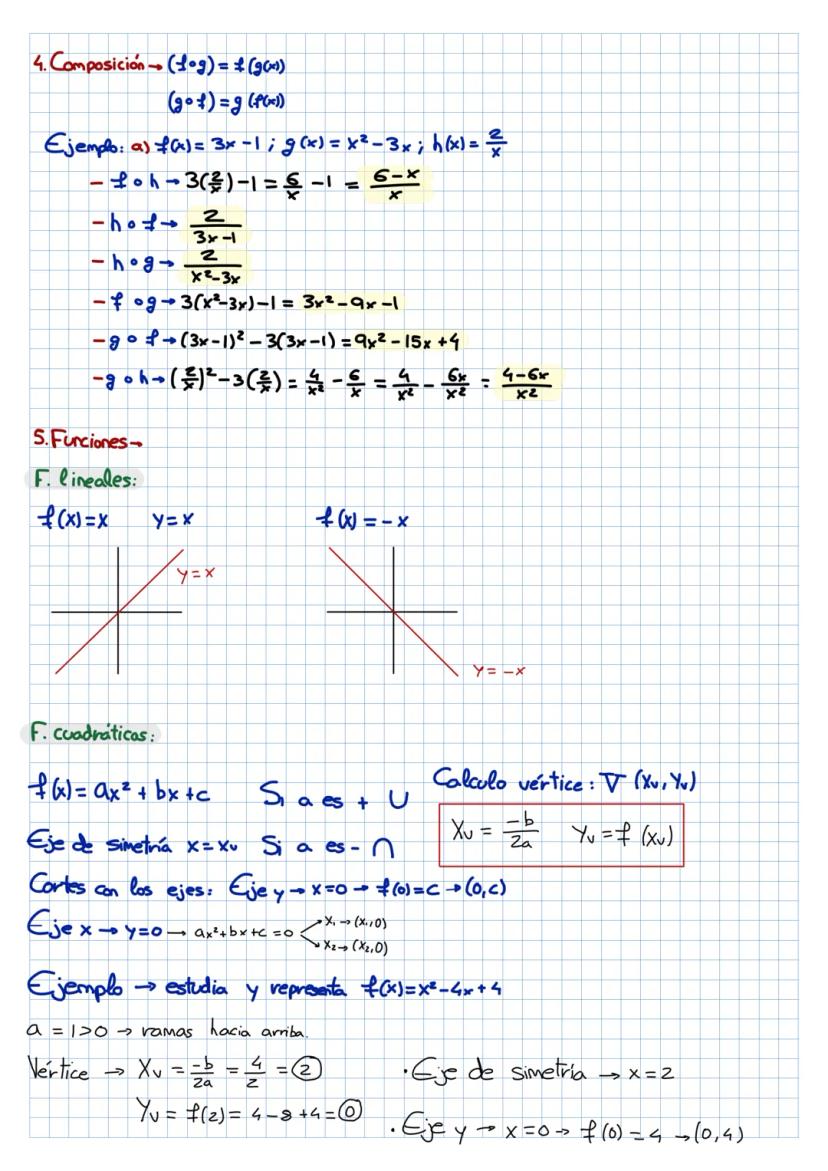 4. Composición → (f∘g) = f(g(x))
(g∘f) = g(f(x))
Ejemplo: a) f(x) = 3x - 1 ; g(x) = x² - 3x ; h(x) = 2/x
- f∘h → 3(2/x) - 1 = 6/x - 1 = (6-x)/x
- h∘f → 2/(3x-1)
- h∘g → 2/(x²-3x)
- f∘g → 3(x²-3x) - 1 = 3x² - 9x - 1
- g∘f → (3x-1)² - 3(3x-1) = 9x² - 15x + 4
- g∘h → (2/x)² - 3(2/x) = 4/x² - 6/x = 4/x² - 6x/x² = (4-6x)/x²
5. Funciones →
F. lineales:
f(x) = x y = x f(x) = -x
y = x
y = -x
F. cuadráticas:
f(x) = ax² + bx + c Si a es + ∪ Calculo vértice: V (Xv, Yv)
Xv = -b/2a Yv = f(xv)
Eje de simetría x = xv Si a es - ∩
Cortes con los ejes: Eje y → x=0 → f(0)=c → (0,c)
Eje x → y=0 → ax²+bx+c=0 x₁ → (x₁,0)
x₂ → (x₂,0)
Ejemplo → estudia y representa f(x) = x² - 4x + 4
a = 1>0 → ramas hacia arriba.
Vértice → Xv = -b/2a = 4/2 = 2 · Eje de simetría → x = 2
Yv = f(2) = 4 - 8 + 4 = 0 · Eje y → x=0 → f(0) = 4 → (0,4)